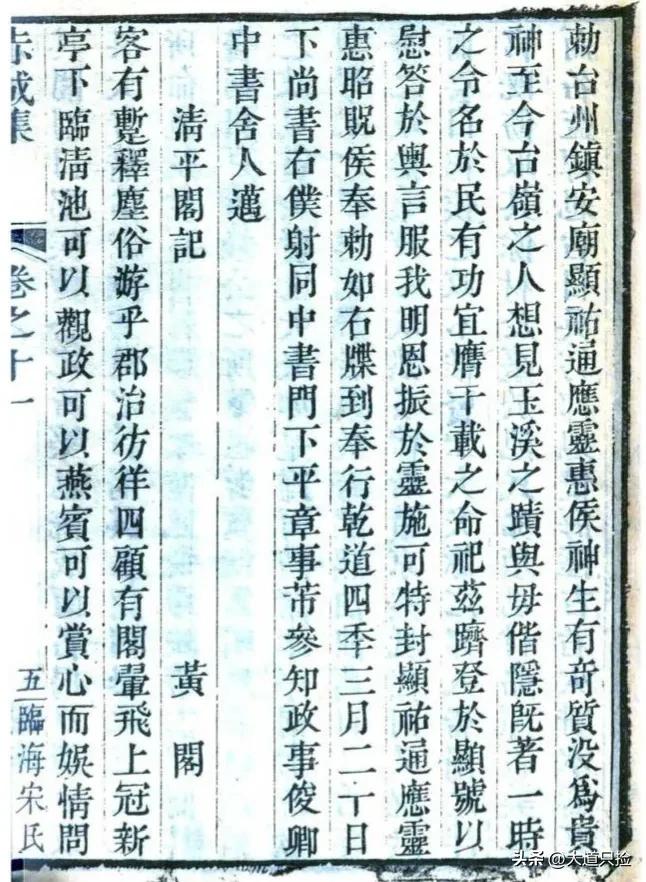 勅台州鎮安廟顯祐通應靈惠侯神生有奇質没爲貴
神至今台嶺之人想見玉溪之蹟與毋偕隱旣著一時
之令名於民有功宜膺千載之命祀茲躋登於顯號以
慰答於輿言服我明恩振於靈施可特封顯祐通應靈
惠昭貺侯奉勅如右牒到奉行乾道四季三月二十日
下尚書右僕射同中書門下平章事芾參知政事俊卿
中書舍人邁
清平閣記 黃閣
客有蹔釋塵俗游乎郡治彷徉四顧有閣翬飛上冠新
亭下臨清池可以觀政可以燕賓可以賞心而娛情問
赤城集 卷之十一 五 臨海宋氏
头条 @大道只捡